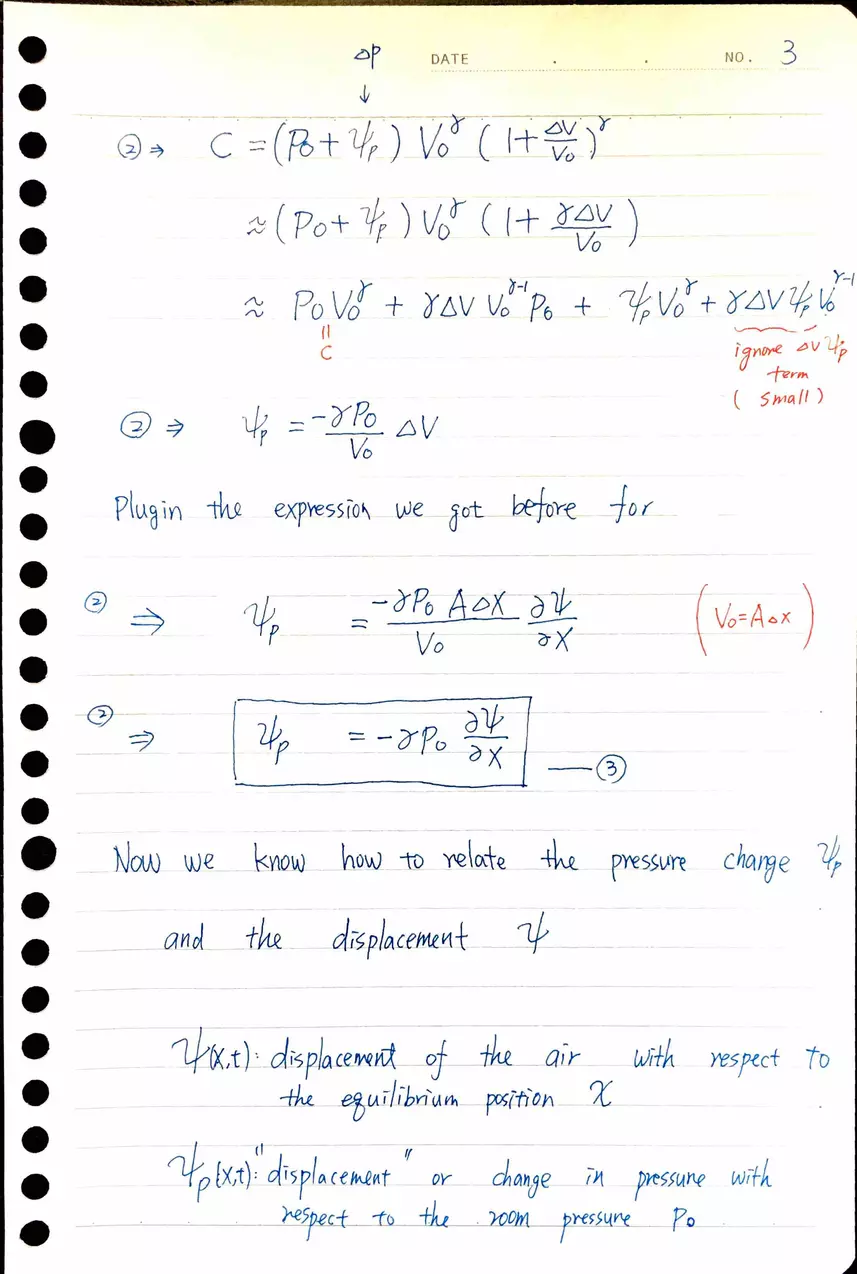 ΔP DATE . . NO. 3
↓
② ⇒ C = (P₀ + ψₚ) V₀^γ (1 + ΔV/V₀)^γ
≈ (P₀ + ψₚ) V₀^γ (1 + γΔV/V₀)
≈ P₀V₀^γ + γΔV V₀^(γ-1) P₀ + ψₚV₀^γ + γΔVψₚV₀^(γ-1)
||
C
ignore ΔVψₚ
term
( small )
② ⇒ ψₚ = -γP₀/V₀ ΔV
Plugin the expression we got before for
② ⇒ ψₚ = -γP₀ AΔX/V₀ ∂ψ/∂X (V₀=AΔX)
② ⇒ ψₚ = -γP₀ ∂ψ/∂X —③
Now we know how to relate the pressure change ψₚ
and the displacement ψ
ψ(x,t): displacement of the air with respect to
the equilibrium position X
ψₚ(x,t): "displacement" or change in pressure with
respect to the room pressure P₀